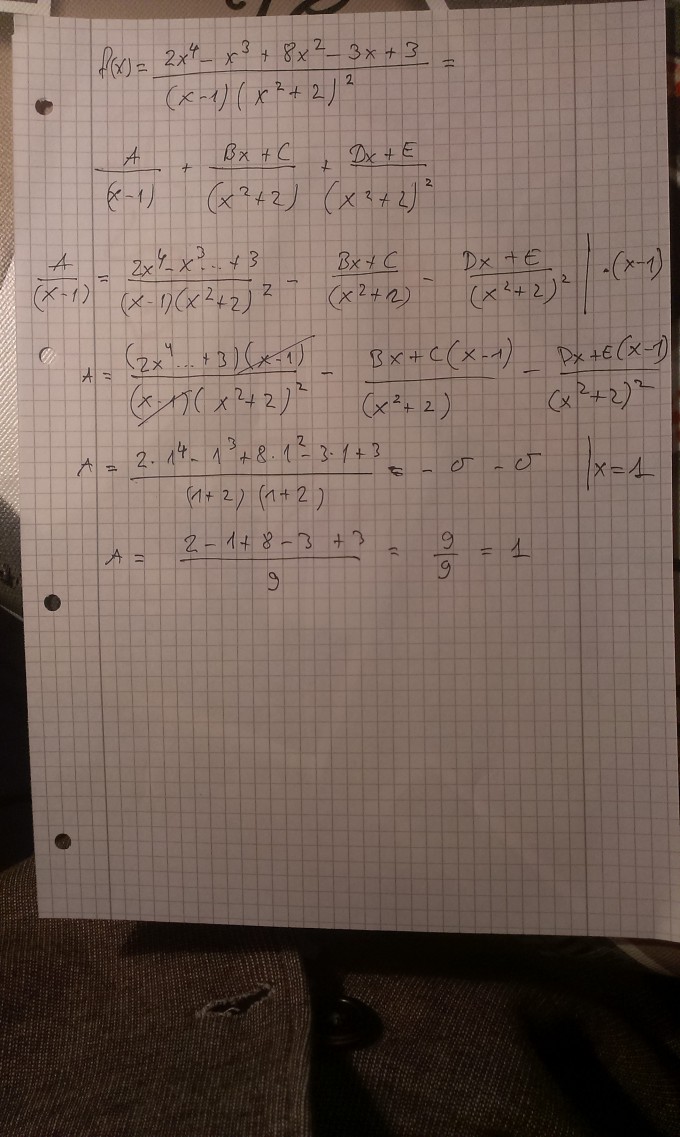 f(x) = (2x⁴ - x³ + 8x² - 3x + 3) / ((x-1)(x²+2)²) =
A/(x-1) + (Bx+C)/(x²+2) + (Dx+E)/(x²+2)²
A/(x-1) = (2x⁴-x³...+3)/((x-1)(x²+2)²) - (Bx+C)/(x²+2) - (Dx+E)/(x²+2)² | ·(x-1)
A = ((2x⁴...+3)(x-1))/((x-1)(x²+2)²) - (Bx+C(x-1))/(x²+2) - (Dx+E(x-1))/(x²+2)²
A = (2·1⁴-1³+8·1²-3·1+3)/((1+2)(1+2)) = - 0 - 0 | x=1
A = (2-1+8-3+3)/9 = 9/9 = 1